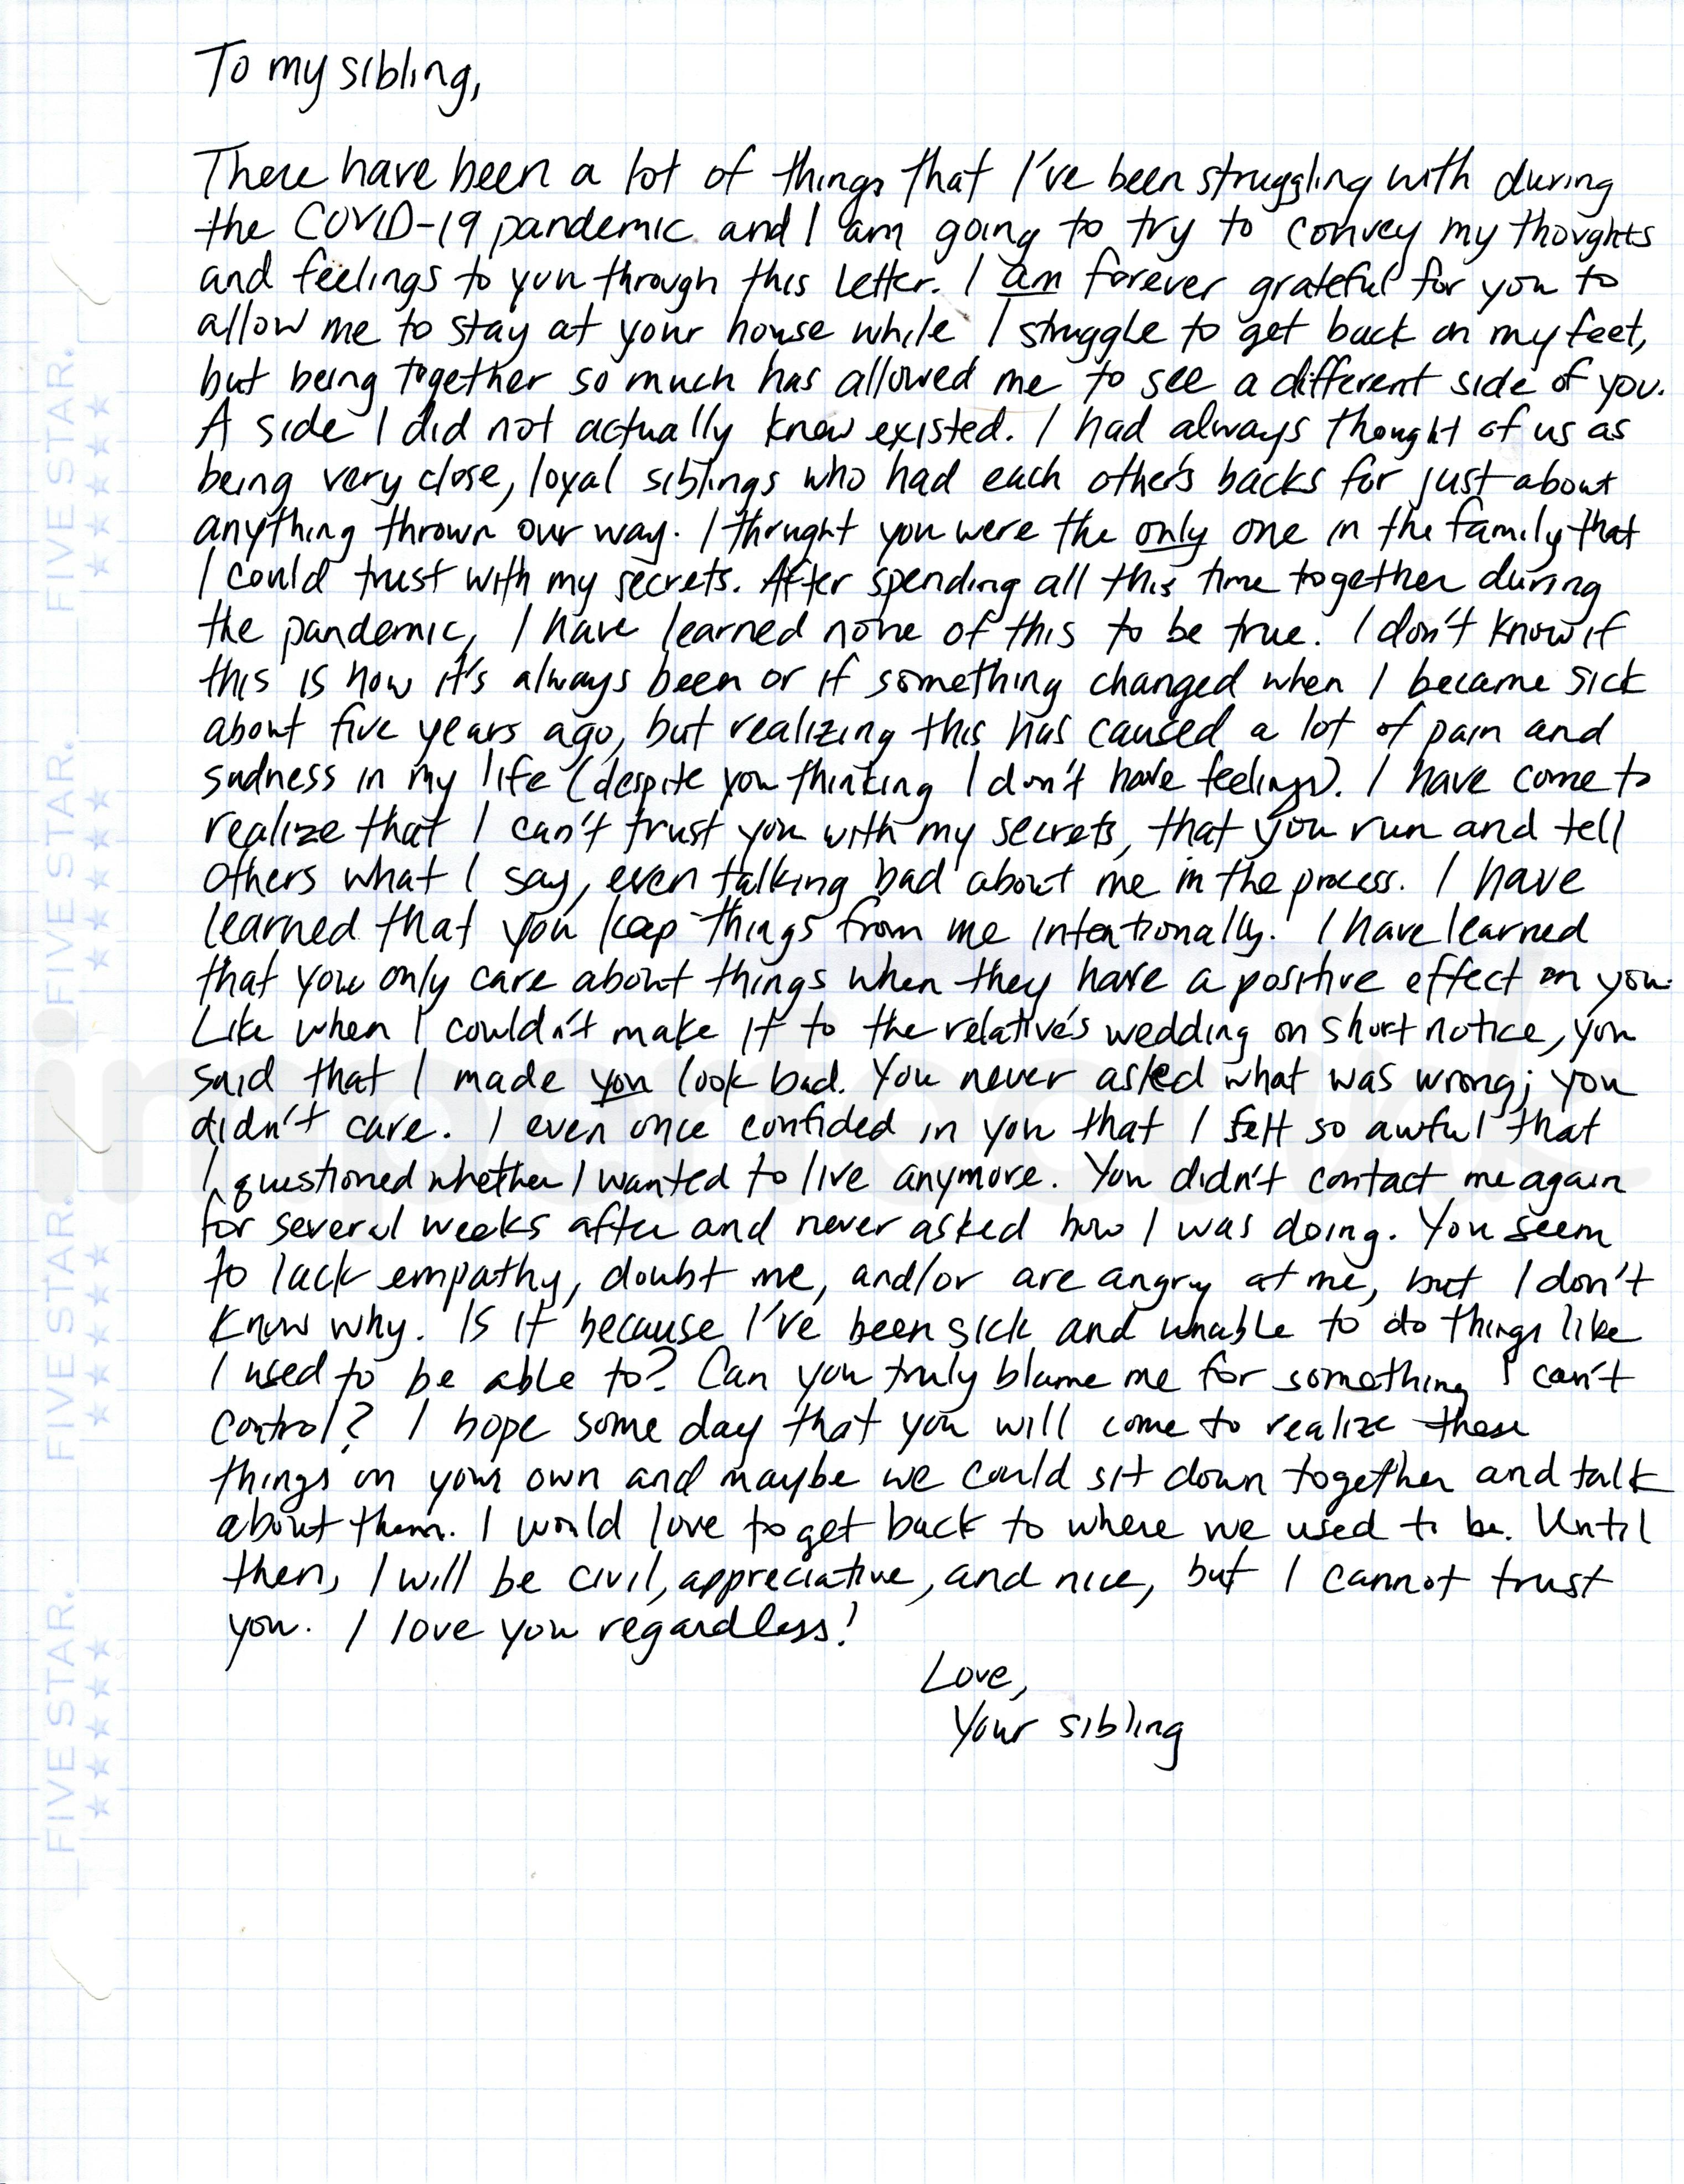 To my sibling,
There have been a lot of things that I've been struggling with during
the COVID-19 pandemic and I am going to try to convey my thoughts
and feelings to you through this letter. I am forever grateful for you to
allow me to stay at your house while I struggle to get back on my feet,
but being together so much has allowed me to see a different side of you.
A side I did not actually know existed. I had always thought of us as
being very close, loyal siblings who had each other's backs for just about
anything thrown our way. I thought you were the only one in the family that
I could trust with my secrets. After spending all this time together during
the pandemic, I have learned none of this to be true. I don't know if
this is how it's always been or if something changed when I became sick
about five years ago, but realizing this has caused a lot of pain and
sadness in my life (despite you thinking I don't have feelings). I have come to
realize that I can't trust you with my secrets, that you run and tell
others what I say, even talking bad about me in the process. I have
learned that you keep things from me intentionally. I have learned
that you only care about things when they have a positive effect on you.
Like when I couldn't make it to the relative's wedding on short notice, you
said that I made you look bad. You never asked what was wrong; you
didn't care. I even once confided in you that I felt so awful that
I questioned whether I wanted to live anymore. You didn't contact me again
for several weeks after and never asked how I was doing. You seem
to lack empathy, doubt me, and/or are angry at me, but I don't
know why. Is it because I've been sick and unable to do things like
I used to be able to? Can you truly blame me for something I can't
control? I hope some day that you will come to realize these
things on your own and maybe we could sit down together and talk
about them. I would love to get back to where we used to be. Until
then, I will be civil, appreciative, and nice, but I cannot trust
you. I love you regardless!
Love,
Your sibling
FIVE STAR.
FIVE STAR.
FIVE STAR.
FIVE STAR.